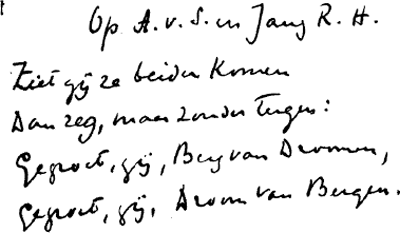 Op A. v. S. en Jany R. H.
Ziet gij ze beiden komen
Dan zeg, maar zonder tergen:
Gegroet, gij, Berg van Dromen,
Gegroet, gij, Droom van Bergen.